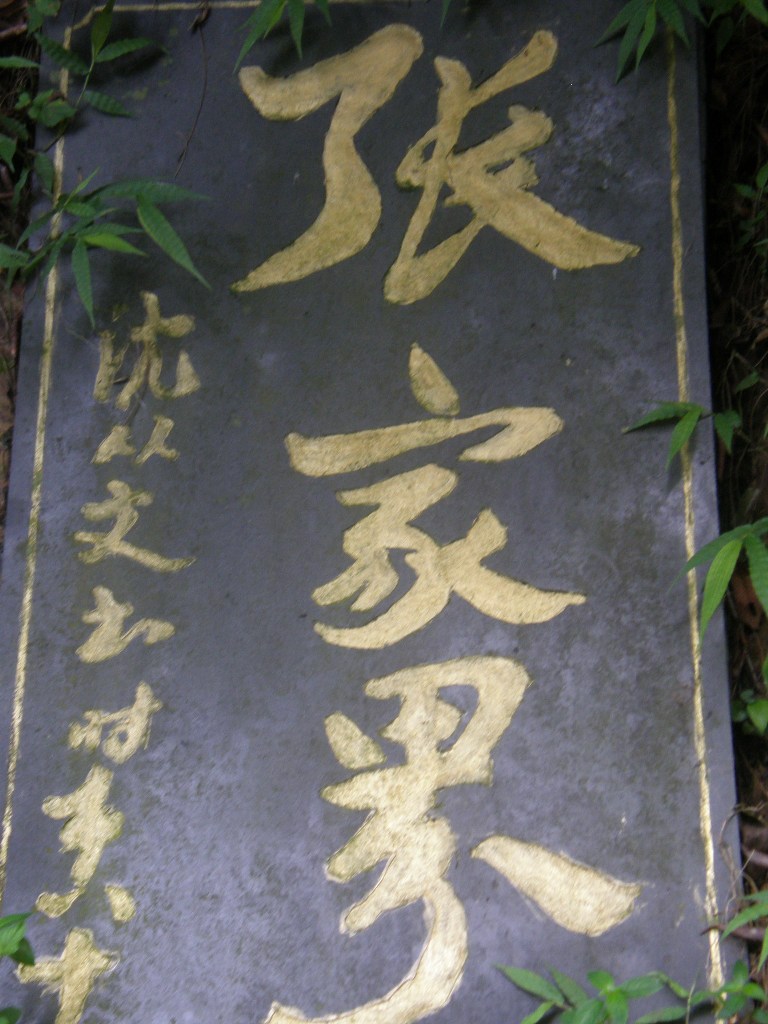 张家界
沈从文书时年八十